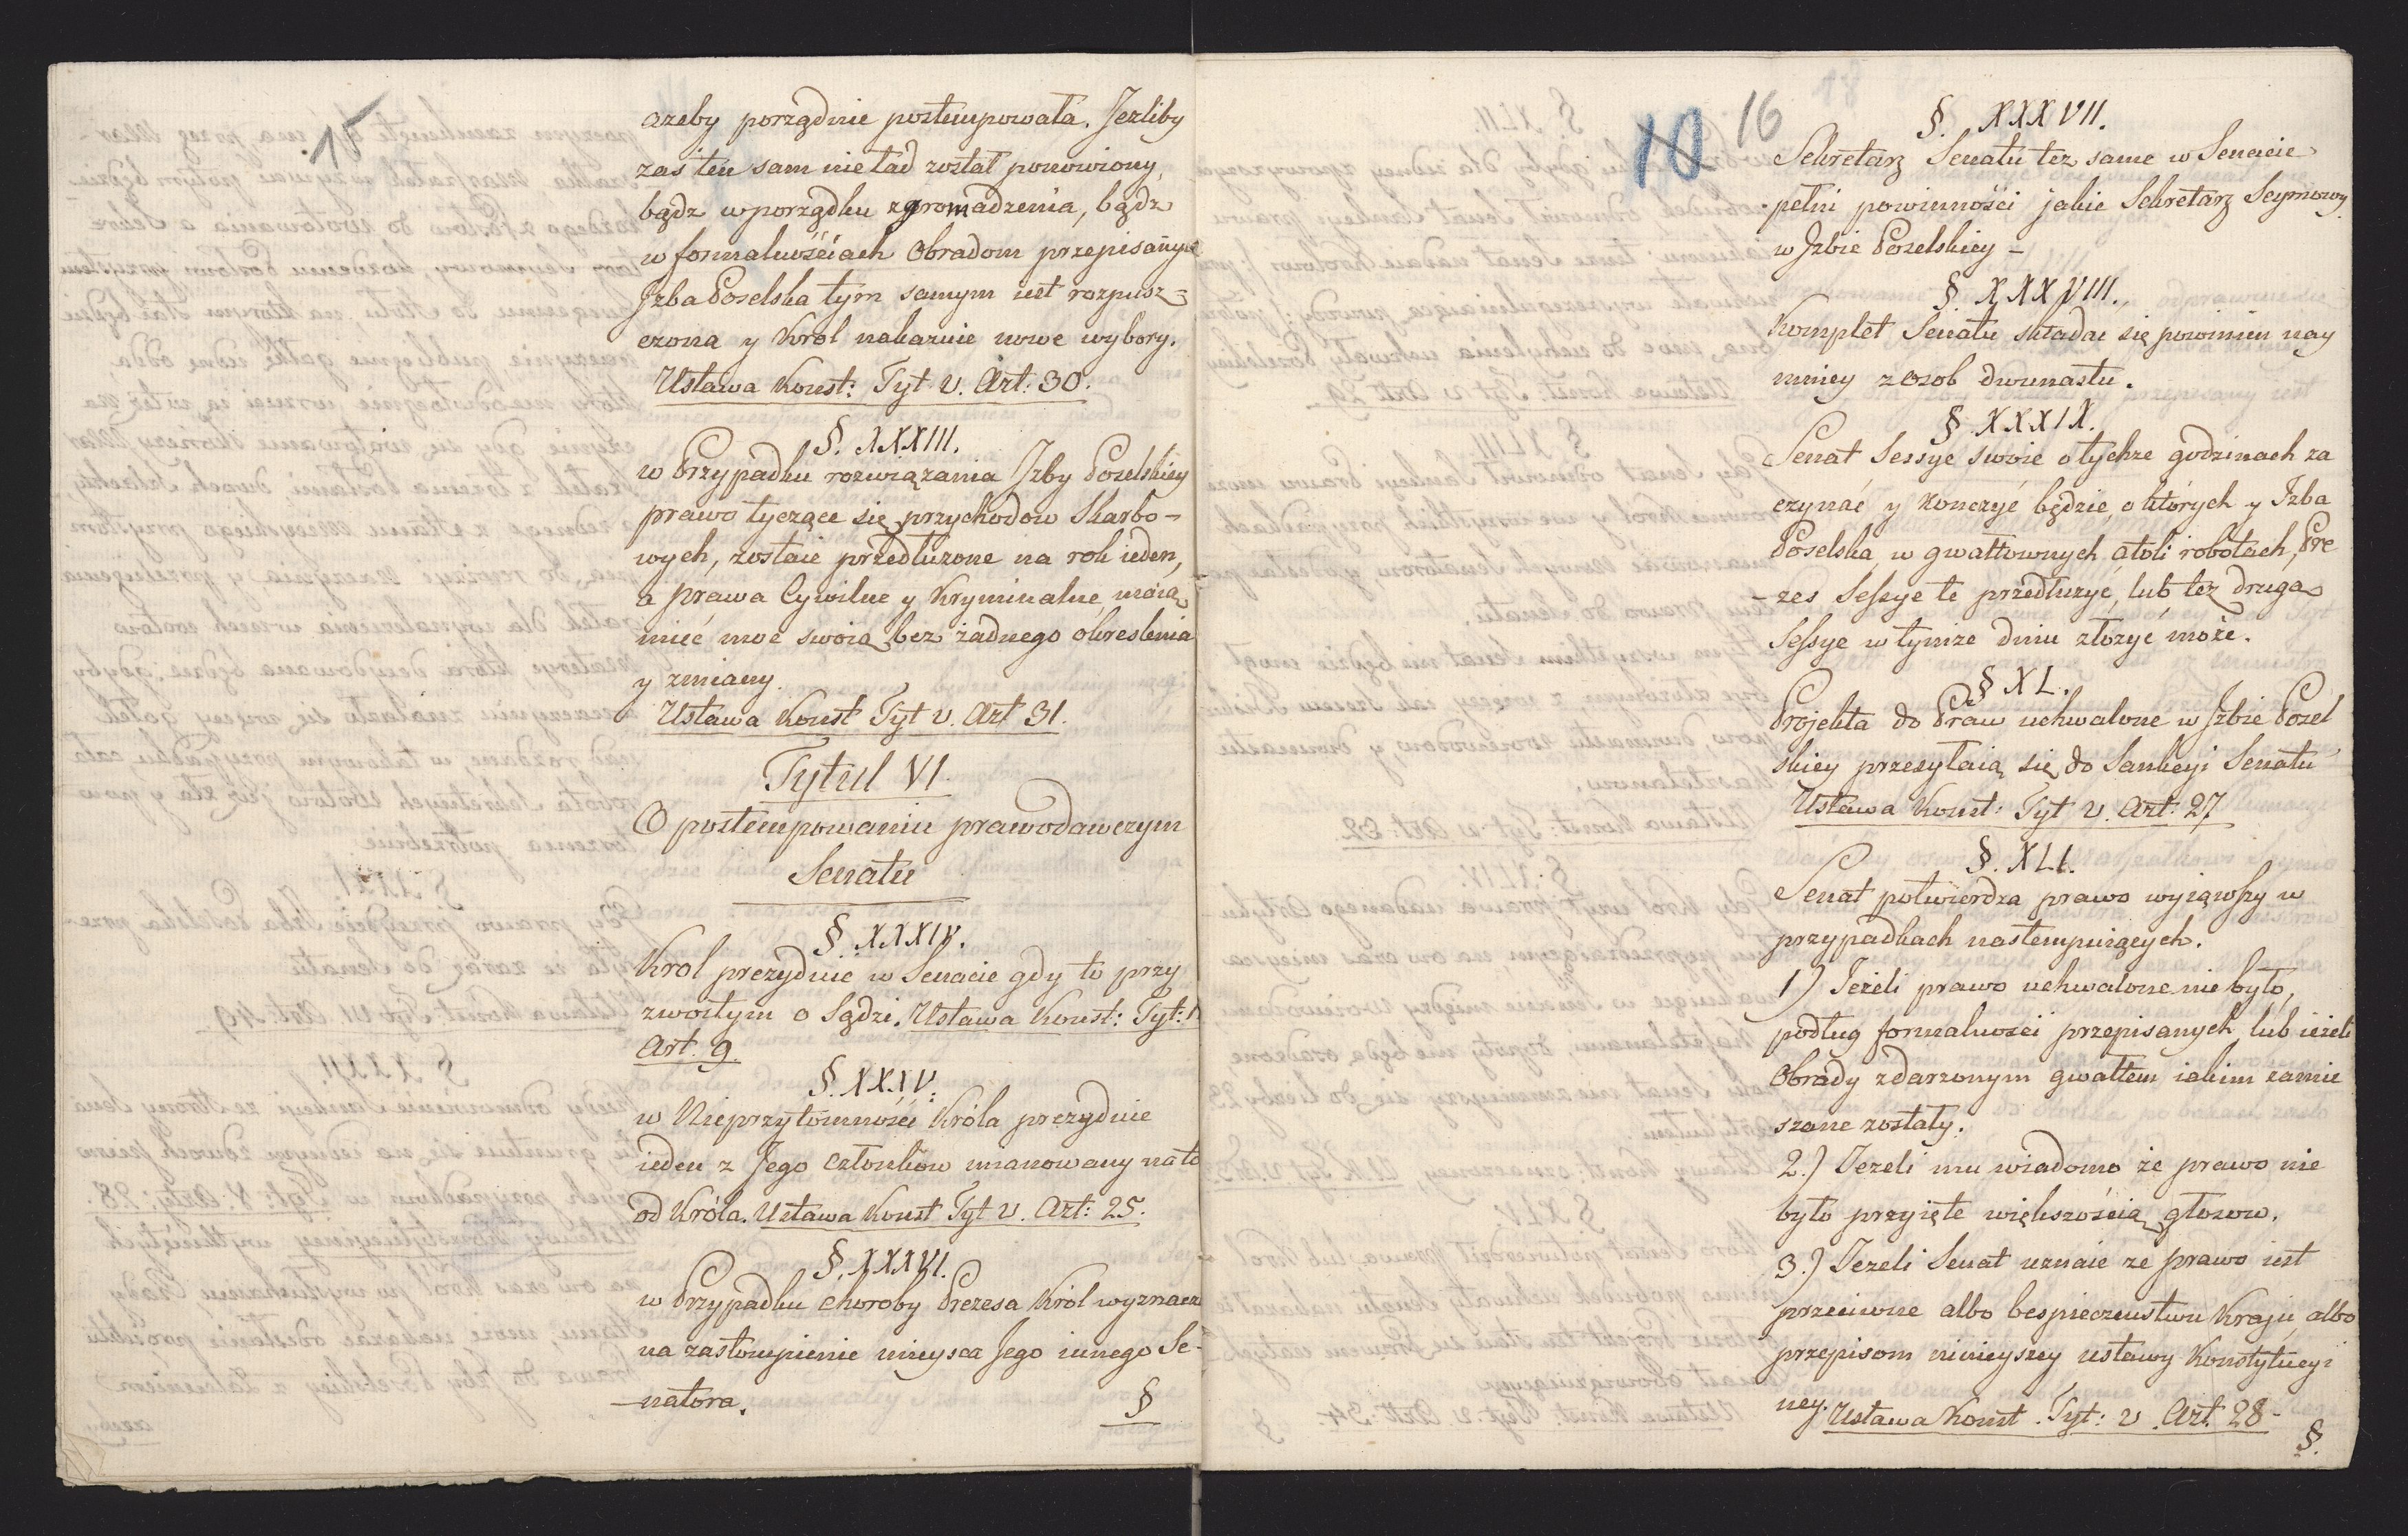 15
azeby porządnie postempowała. Jezliby
zaś ten sam nieład został ponowiony,
bądz w porządku zgromadzenia, bądz
w formalnościach Obradom przepisanych
Jzba Poselska tym samym iest rozpusz=
czona y Krol nakazuie nowe wybory.
Ustawa Konst: Tyt. V. Art: 30.
§. XXXIII.
w Przypadku rozwiązania Jzby Poselskiey
prawo tyczące się przychodow Skarbo-
wych, zostaie przedłuzone na rok ieden,
a prawa Cywilne y Kryminalne, maią
mieć moc swoią bez żadnego okreslenia
y zmiany.
Ustawa Konst Tyt V. Art 31.
Tytul VI.
O postempowaniu prawodawczym
Senatu
§. XXXIV.
Krol prezyduie w Senacie gdy to przy
zwoitym o Sądzi. Ustawa Konst: Tyt:
Art. 9.
§. XXXV.
w Nieprzytomnośći Króla prezyduie
ieden z Jego członkow mianowany na to
od Króla. Ustawa Konst Tyt V. Art: 25.
§. XXXVI.
w Przypadku choroby Prezesa Król wyznacza
na zastompienie mieysca Jego innego Se-
natora.
§
10 16
§. XXXVII.
Sekretarz Senatu tez same w Senacie
pełni powinnośći jakie Sekretarz Seymowy
w Jzbie Poselskiey -
§ XXXVIII.
Komplet Senatu składac się powinien nay
mniey z osob dwunastu.
§ XXXIX.
Senat Sessye swoie o tychze godzinach za
czynać y konczyć będzie, o których y Jzba
Poselska, w gwałtownych atoli robotach, Pre
-zes Sessye te przedłuzyć, lub tez drugą
Sessye w tymze dniu złozyć może.
§ XL.
Projekta do Praw uchwalone w Jzbie Posel
skiey przesyłaią się do Sankcyi Senatu
Ustawa Konst: Tyt V. Art: 27
§. XLI.
Senat potwierdza prawo wyiąwszy w
przypadkach nastempuiących.
1) Jeżeli prawo uchwalone nie było,
podług formalności przepisanych lub ieżeli
Obrady zdarzonym gwałtem iakim zamie
szane zostały.
2.) Jezeli mu wiadomo że prawo nie
było przyięte większością głosow.
3.) Jezeli Senat uznaie ze prawo iest
przeciwne albo bespieczenstwu Kraju, albo
przepisom ninieyszey ustawy Konstytucyi
ney. Ustawa Konst. Tyt: V. Art. 28-
§.